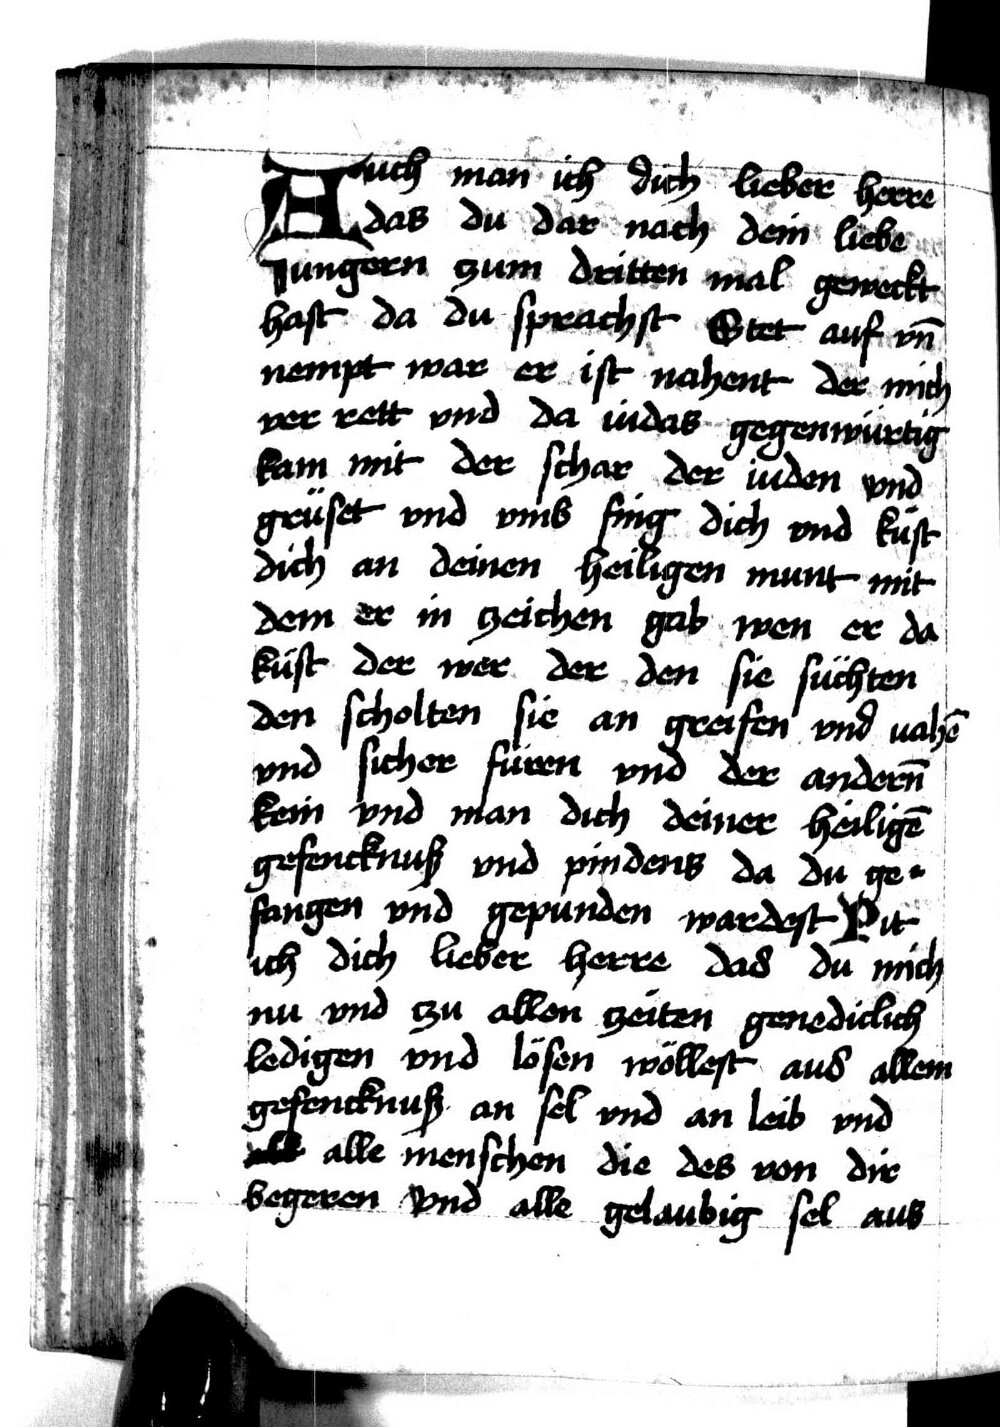 Auch man ich dich lieber herre
das du dar nach dein liebe
Jungern czum dritten mal geweckt
hast da du sprachst Stet auf vn̄
nempt war er ist nahent der mich
ver rett vnd da iudas gegenwürtig
kam mit der schar der iuden vnd
grüset vnd vmb fing dich vnd küst
dich an deinen heiligen munt mit
dem er in czeichen gab wen er da
küst der wer der den sie süchten
den scholten sie an greifen vnd uahē
vnd sicher füren vnd der andern̄
kein vnd man dich deiner heiligē
gefencknuß vnd pindens da du ge-
fangen vnd gepunden wardest Pit
ich dich lieber herre das du mich
nu vnd czu allen czeiten genediclich
ledigen vnd lösen wöllest aus allem
gefencknuß an sel vnd an leib vnd
alle menschen die des von dir
begeren Vnd alle gelaubig sel aus